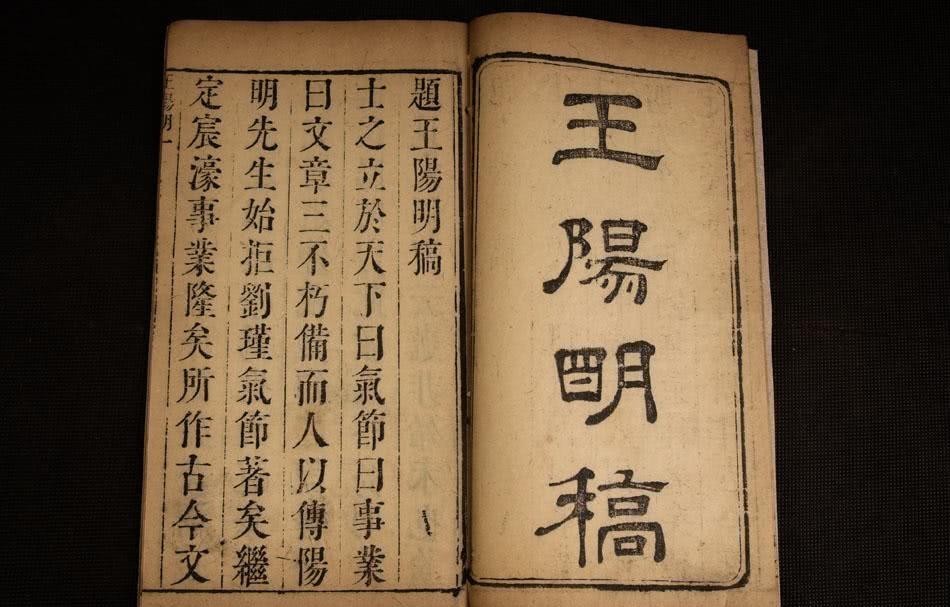 王陽明稿
題王陽明稿
士之立於天下曰氣節曰事業
曰文章三不朽備而人以傳陽
明先生始拒劉瑾氣節著矣繼
定宸濠事業隆矣所作古今文
王陽明一